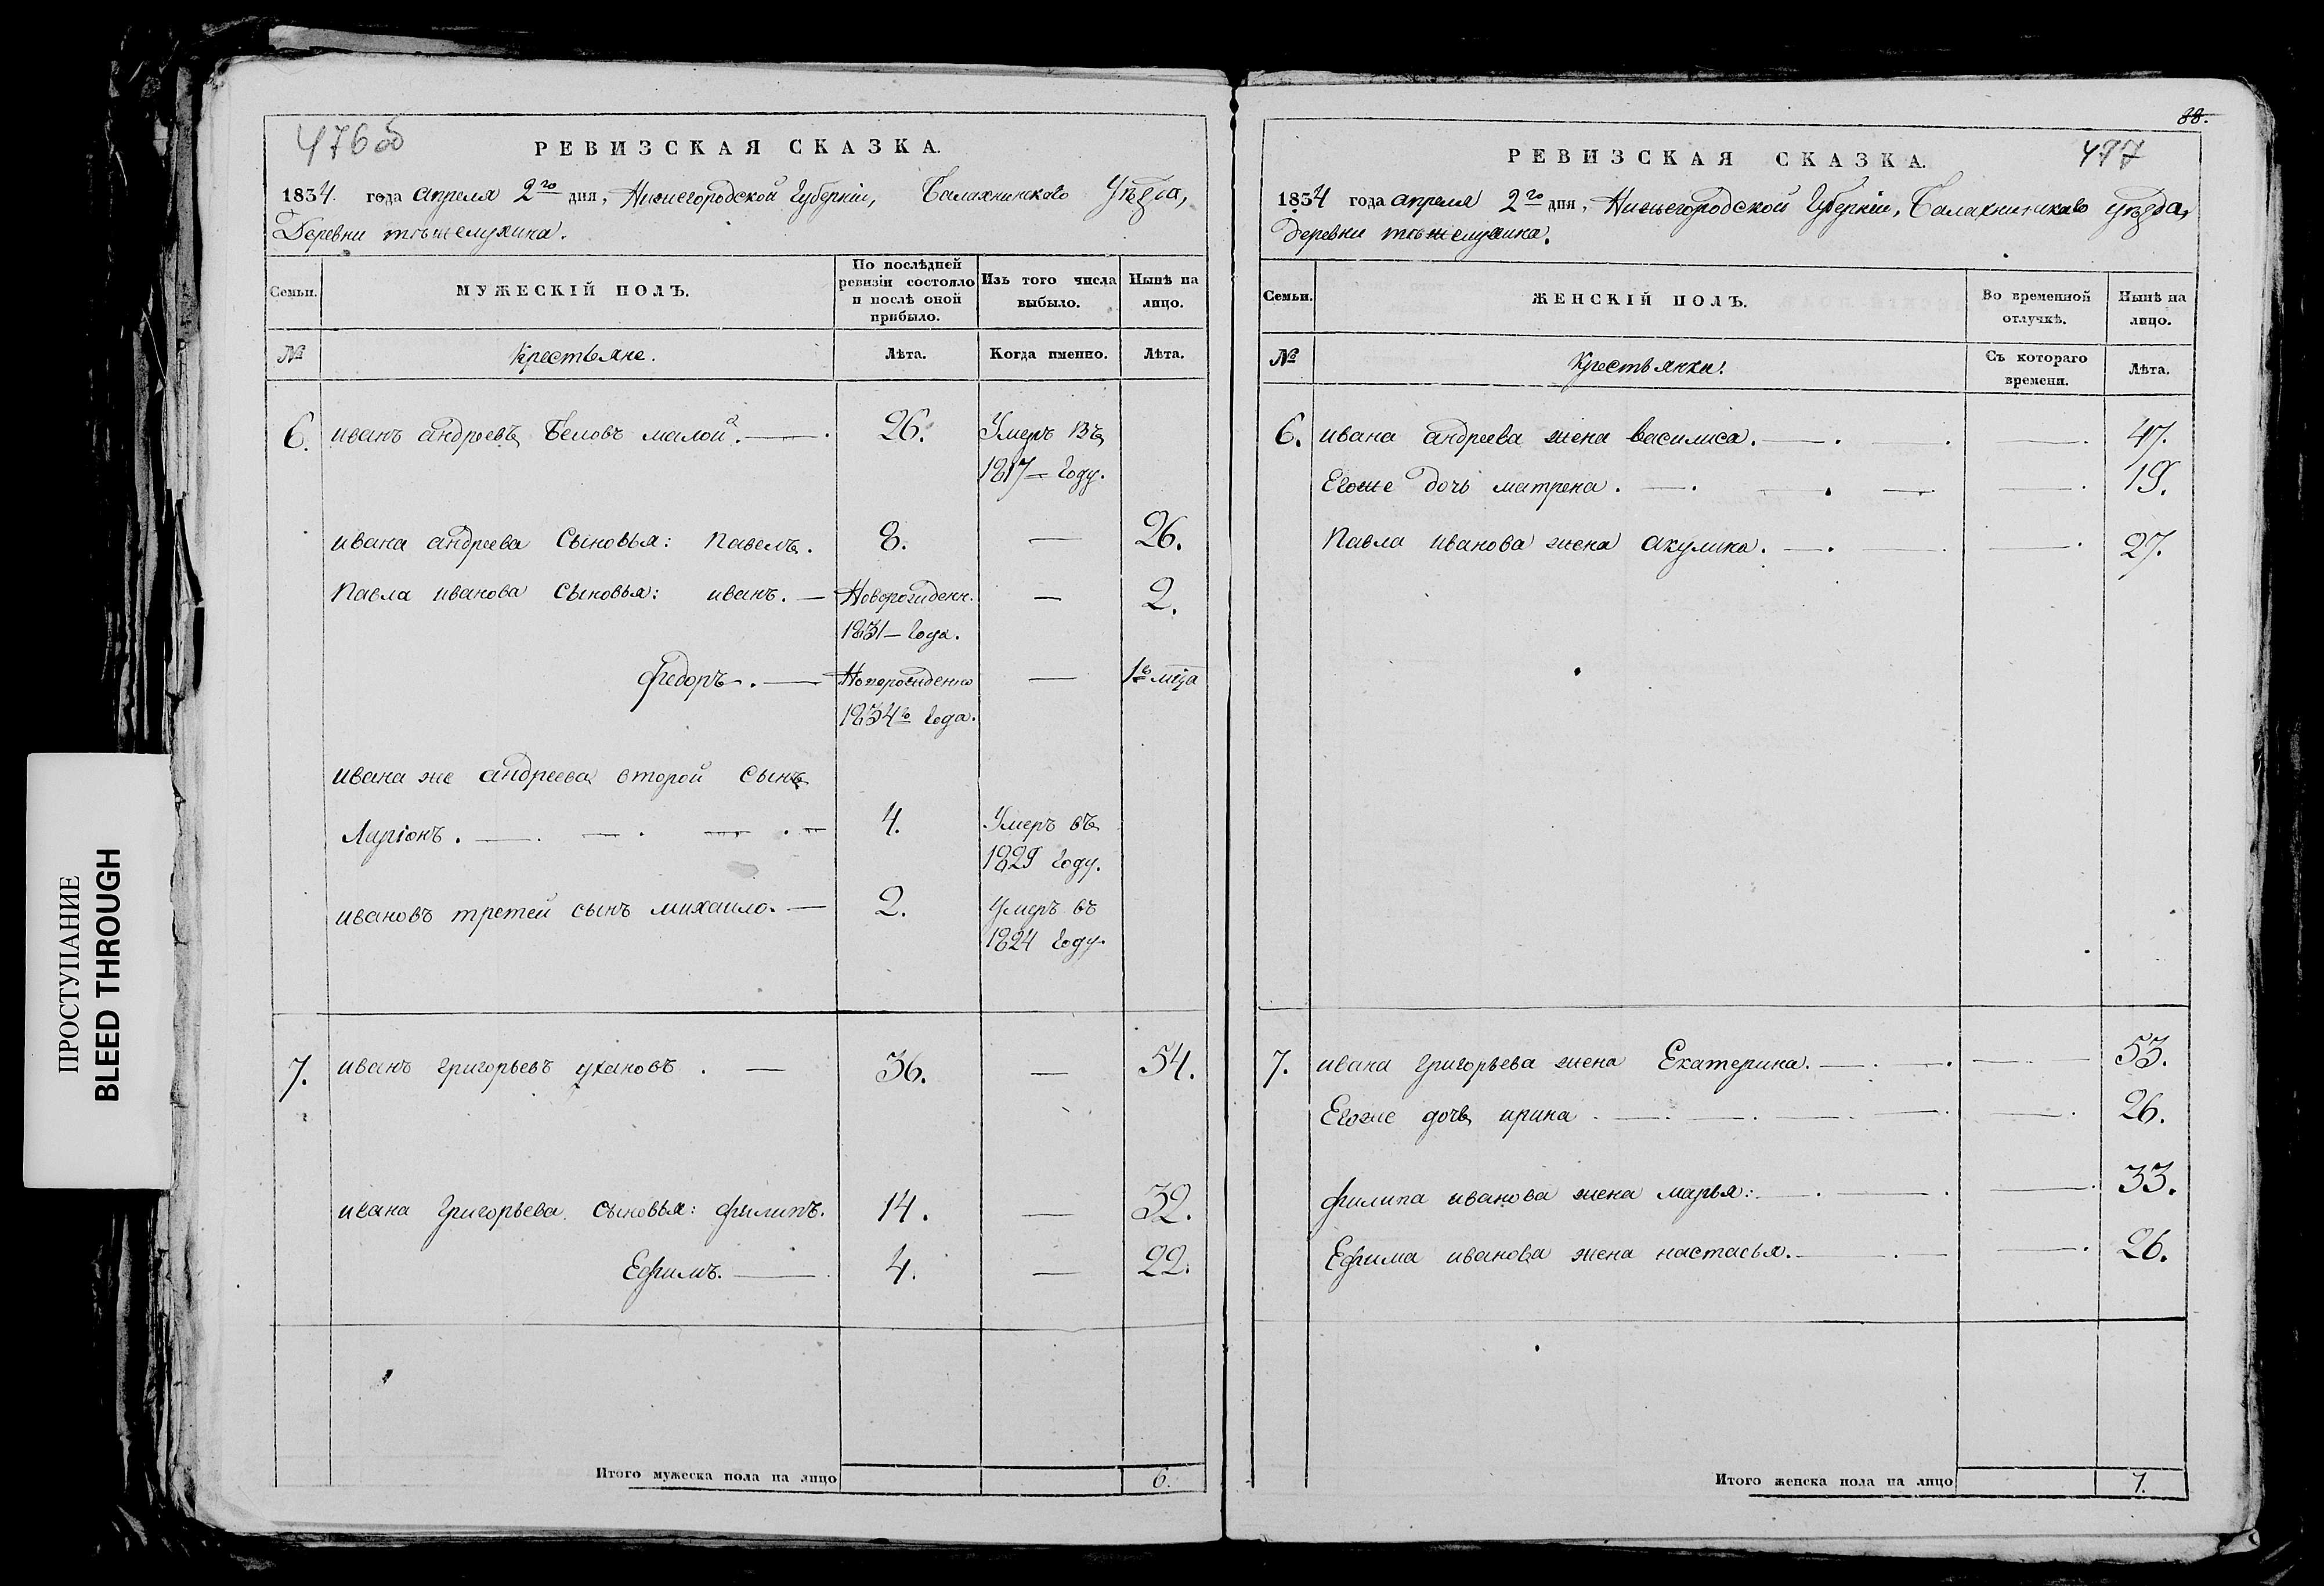 476 об
РЕВИЗСКАЯ СКАЗКА.
1834. года апреля 2го дня, Нижегородской Губерніи, Балахнинскаво Уѣзда,
Деревни
Семьи.
МУЖЕСКІЙ ПОЛЪ.
По послѣдней ревизіи состояло и послѣ оной прибыло.
Изъ того числа выбыло.
Нынѣ на лицо.
№
Крестьяне.
Лѣта.
Когда именно.
Лѣта.
6. иванъ андреевъ Беловъ малой. — 26. Умеръ въ
1817 — Году.
ивана андреева Сыновья: павелъ. 8. — 26.
павла иванова сыновья: иванъ. — Новорожденн. — 2.
1831 — Года.
федоръ. — Новорожденно — 1го мца
1834го Года.
ивана же андреева второй сынъ
Ларіонъ. — 4. Умеръ въ
1829 Году.
ивановъ третей сынъ михаило. — 2. Умеръ въ
1824 Году.
7. иванъ григорьевъ ухановъ. — 36. — 54.
ивана Григорьева сыновья: филипъ. 14. — 32.
Ефимъ. — 4. — 22.
Итого мужеска пола на лицо 6.
88.
497
РЕВИЗСКАЯ СКАЗКА.
1834 года апреля 2го дня, Нижегородской Губерніи, Балахнинскаво уѣзда,
деревни
Семьи.
ЖЕНСКІЙ ПОЛЪ.
Во временной отлучкѣ.
Нынѣ на лицо.
№
Крестьянки.
Съ котораго времени.
Лѣта.
6. ивана андреева жена василиса. — 47.
Егоже дочь матрена. — 19.
павла иванова жена акулина. — 27.
7. ивана григорьева жена Екатерина. — 53.
Егоже дочь ирина — 26.
филипа иванова жена марья: — 33.
Ефима иванова жена настасья. — 26.
Итого женска пола на лицо 7.
ПРОСТУПАНИЕ
BLEED THROUGH